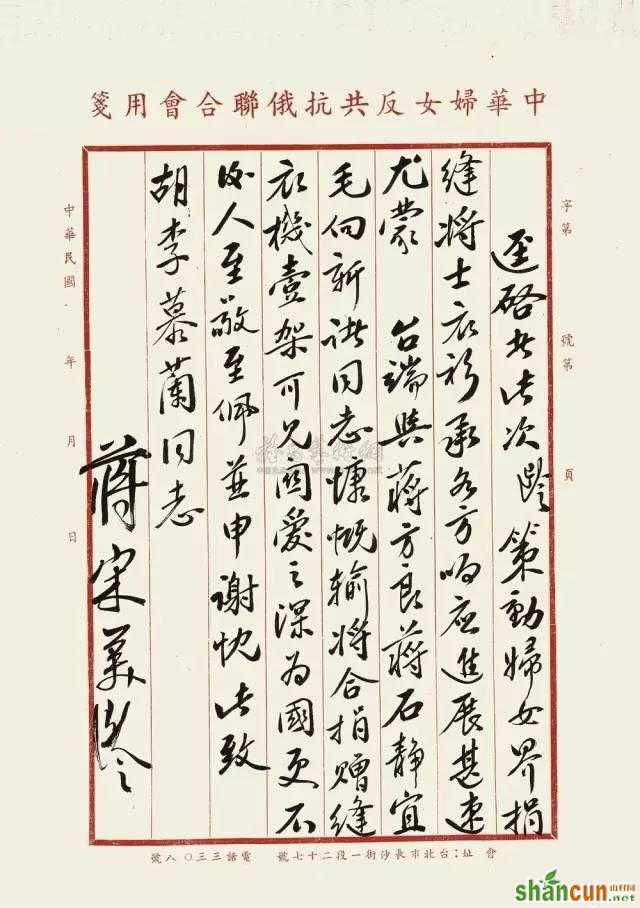 中華婦女反共抗俄聯合會用箋
字第　號第　頁
逕啓者此次　齡策動婦女界捐
縫將士衣衫承各方响应進展甚速
尤蒙　台端與蔣方良蔣石靜宜
毛向新諸同志慷慨輸將合捐贈縫
衣機壹架可見関愛之深為國更不
後人至敬至佩並申謝忱此致
胡李慕蘭同志
蔣宋美齡
中華民國　年　月　日
會址：台北市長沙街一段二十七號　電話三三〇八號
shancun 山村网
.net